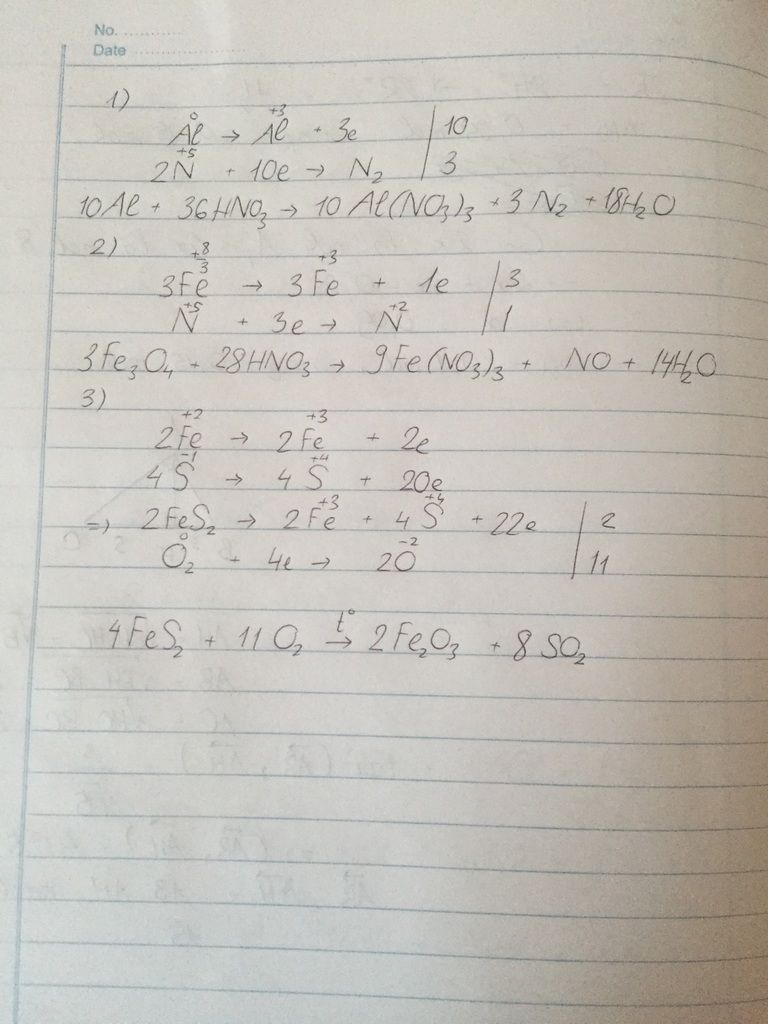 No. ............
Date ........................
1)
Al⁰ → Al⁺³ + 3e | 10
2N⁺⁵ + 10e → N₂ | 3
10Al + 36HNO₃ → 10Al(NO₃)₃ + 3N₂ + 18H₂O
2)
3Fe⁺⁸/³ → 3Fe⁺³ + 1e | 3
N⁺⁵ + 3e → N⁺² | 1
3Fe₃O₄ + 28HNO₃ → 9Fe(NO₃)₃ + NO + 14H₂O
3)
2Fe⁺² → 2Fe⁺³ + 2e
4S⁻¹ → 4S⁺⁴ + 20e
=> 2FeS₂ → 2Fe⁺³ + 4S⁺⁴ + 22e | 2
O₂⁰ + 4e → 2O⁻² | 11
4FeS₂ + 11O₂ →(t°) 2Fe₂O₃ + 8SO₂